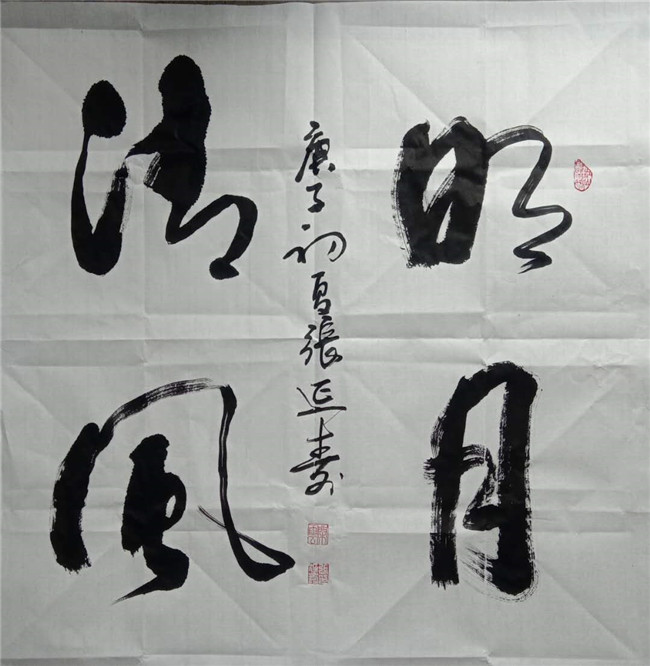 明月
清风
庚子初夏張延寿